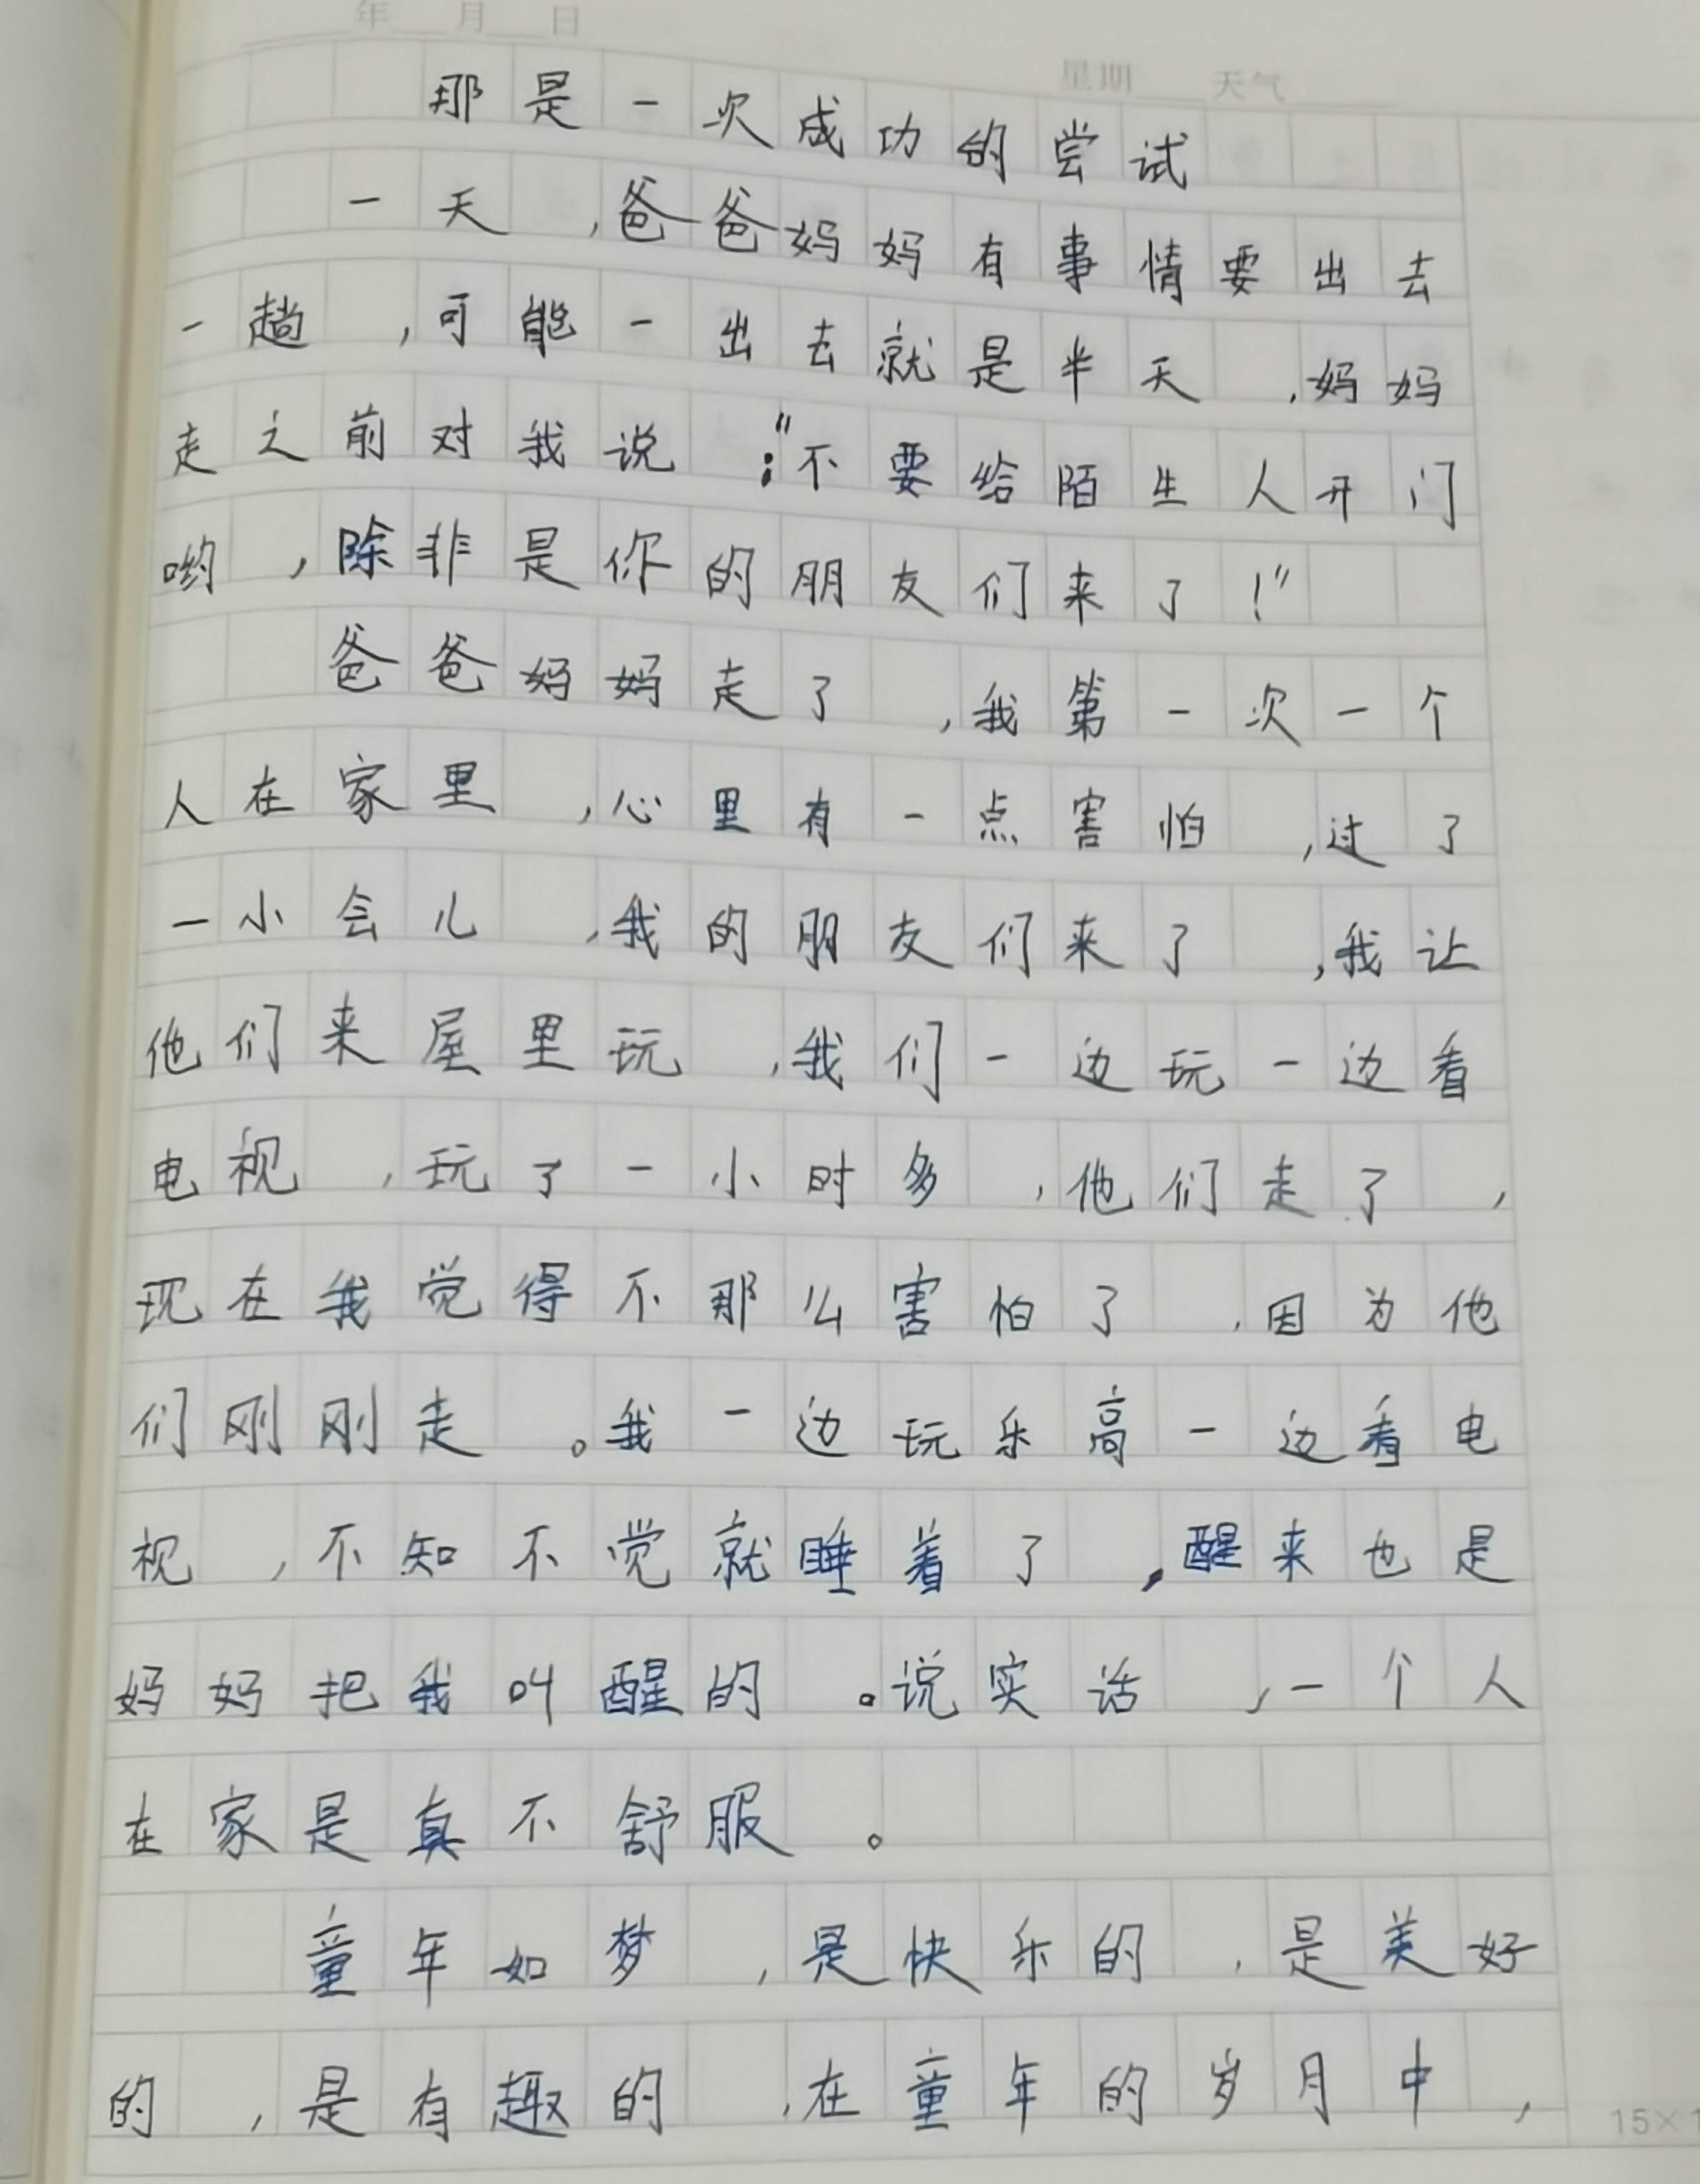 年 月 日
星期 天气
那是一次成功的尝试
一天,爸爸妈妈有事情要出去
一趟,可能一出去就是半天,妈妈
走之前对我说:“不要给陌生人开门
哟,除非是你的朋友们来了!”
爸爸妈妈走了,我第一次一个
人在家里,心里有一点害怕,过了
一小会儿,我的朋友们来了,我让
他们来屋里玩,我们一边玩一边看
电视,玩了一小时多,他们走了,
现在我觉得不那么害怕了,因为他
们刚刚走。我一边玩乐高一边看电
视,不知不觉就睡着了,醒来也是
妈妈把我叫醒的。说实话,一个人
在家是真不舒服。
童年如梦,是快乐的,是美好
的,是有趣的,在童年的岁月中,